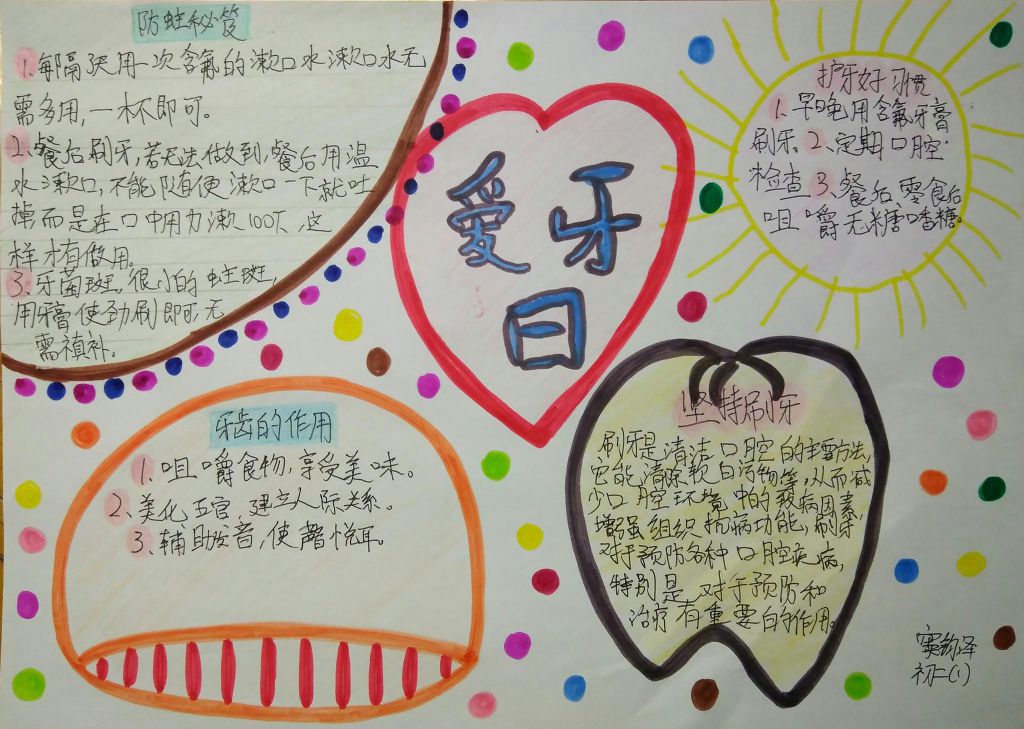 防蛀秘笈
1.每隔3天用一次含氟的漱口水漱口水无
需多用,一杯即可。
2.餐后刷牙,若无法做到,餐后用温
水漱口,不能随便漱口一下就吐
掉而是在口中用力漱100下,这
样才有做用。
3.牙菌斑,很小的蛀斑,
用牙膏使劲刷即可无
需填补。
爱牙
日
护牙好习惯
1.早晚用含氟牙膏
刷牙。2.定期口腔
检查3.餐后、零食后
咀嚼无糖口香糖。
牙齿的作用
1.咀嚼食物,享受美味。
2.美化五官,建立人际关系。
3.辅助发音,使声悦耳。
坚持刷牙
刷牙是清洁口腔的主要方法,
它能清除软白污物等,从而减
少口腔环境中的致病因素,
增强组织抗病功能,刷牙
对于预防各种口腔疾病,
特别是对于预防和
治疗有重要的作用。
初二(1)